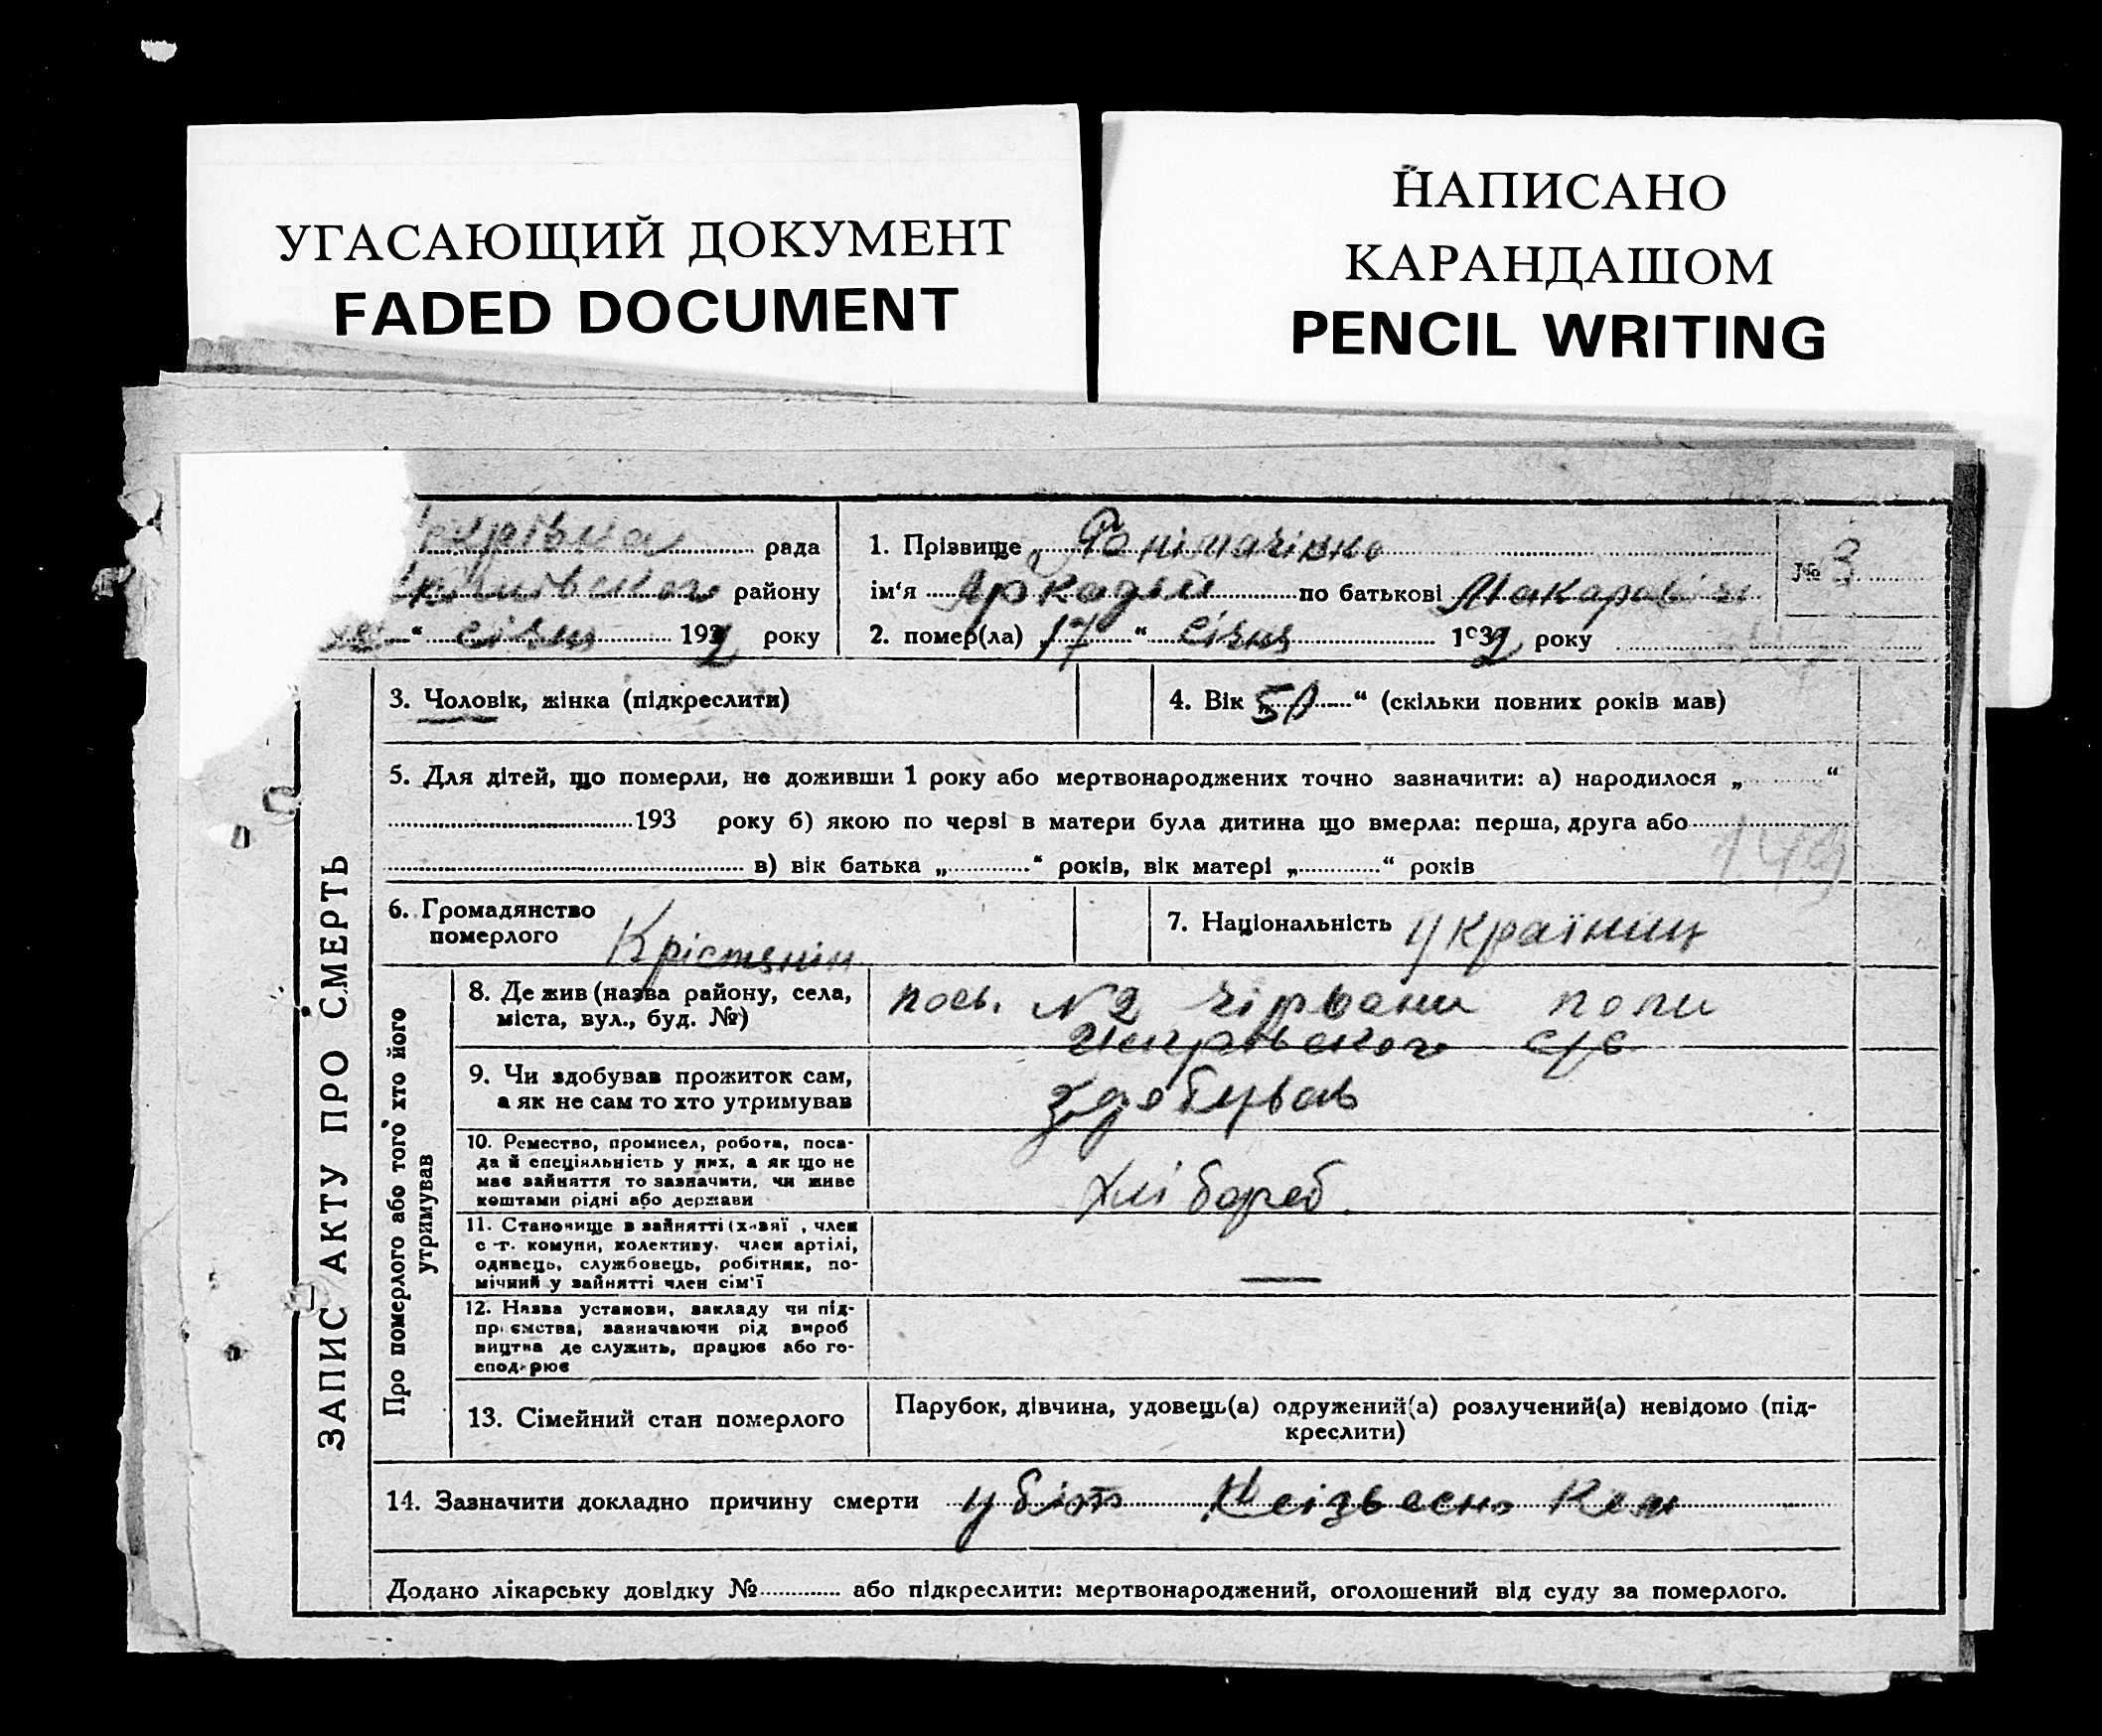 УГАСАЮЩИЙ ДОКУМЕНТ
FADED DOCUMENT
НАПИСАНО
КАРАНДАШОМ
PENCIL WRITING
рада
району
“ січня 1932 року
1. Прізвище
ім‘я Аркадий по батькові Макарович
2. помер(ла) 17 “ січня 1932 року
№ 3
ЗАПИС АКТУ ПРО СМЕРТЬ
3. Чоловік, жінка (підкреслити)
4. Вік „50“ (скільки повних років мав)
5. Для дітей, що померли, не доживши 1 року або мертвонароджених точно зазначити: а) народилося „ “
193 року б) якою по черзі в матери була дитина що вмерла: перша, друга або
в) вік батька „ “ років, вік матері „ “ років
6. Громадянство
померлого
Крістянін
7. Національність Україниц
Про померлого або того хто його
утримував
8. Де жив (назва району, села,
міста, вул., буд. №)
посьـ. №2 Чірвани поли
с/с
9. Чи здобував прожиток сам,
а як не сам то хто утримував
здобував
10. Ремество, промисел, робота, поса-
да й спеціяльність у них, а як що не
має зайняття то зазначити, чи живе
коштами рідні або держави
хлібороб
11. Становище в зайнятті (хазяї , член
с-г. комуни, колективу, член артілі,
одинець, службовець, робітник, по-
мічний у зайнятті член сім'ї
—
12. Назва установи, закладу чи під-
приємства, зазначаючи рід вироб
ництва де служить, працює або го-
сподарює
13. Сімейний стан померлого
Парубок, дівчина, удовець(а) одружений(а) розлучений(а) невідомо (під-
креслити)
14. Зазначити докладно причину смерти убіт Неізвесно Кем
Додано лікарську довідку № або підкреслити: мертвонароджений, оголошений від суду за померлого.